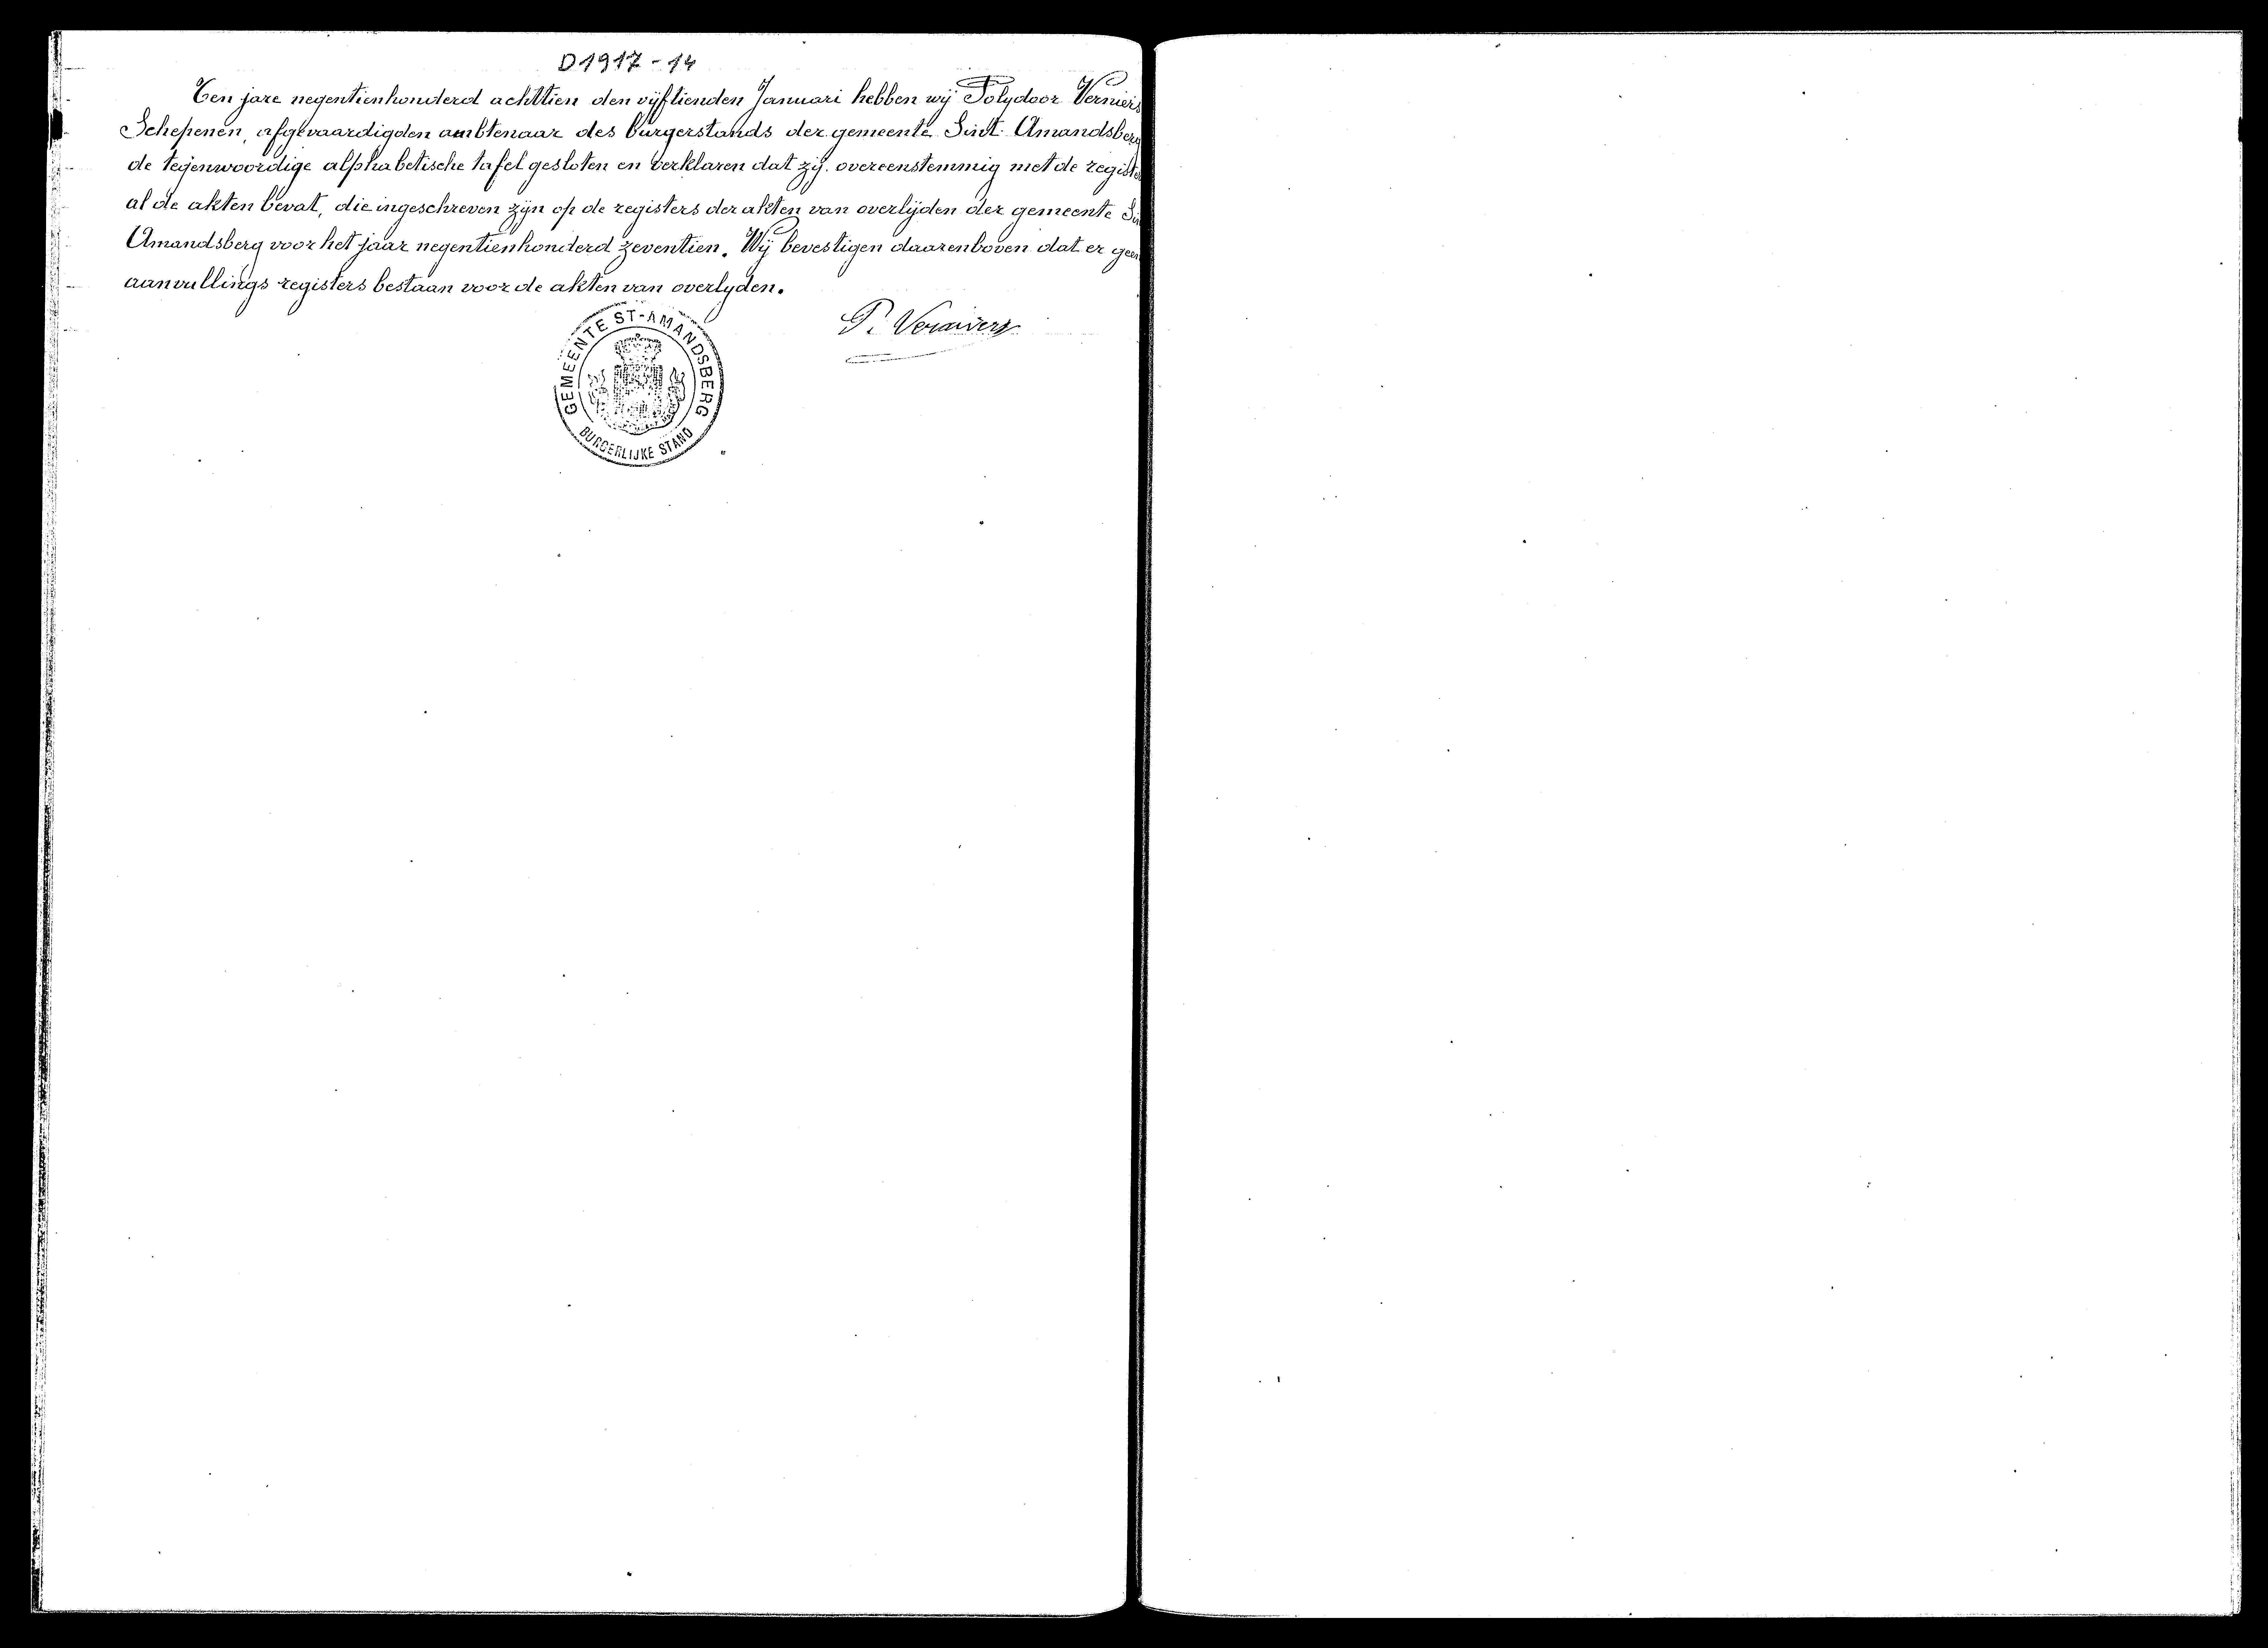 D1917-14
Ten jare negentienhonderd achttien den vijftienden Januari hebben wij Polydoor Vermeirs
Schepenen, afgevaardigden ambtenaar des burgerstands der gemeente Sint Amandsberg
de tegenwoordige alphabetische tafel gesloten en verklaren dat zij overeenstemmig met de regist
al de akten bevat, die ingeschreven zijn op de registers der akten van overlijden der gemeente
Amandsberg voor het jaar negentienhonderd zeventien. Wij bevestigen daarenboven dat er geen
aanvullings registers bestaan voor de akten van overlyden.
GEMEENTE ST-AMANDSBERG
BURGERLIJKE STAND